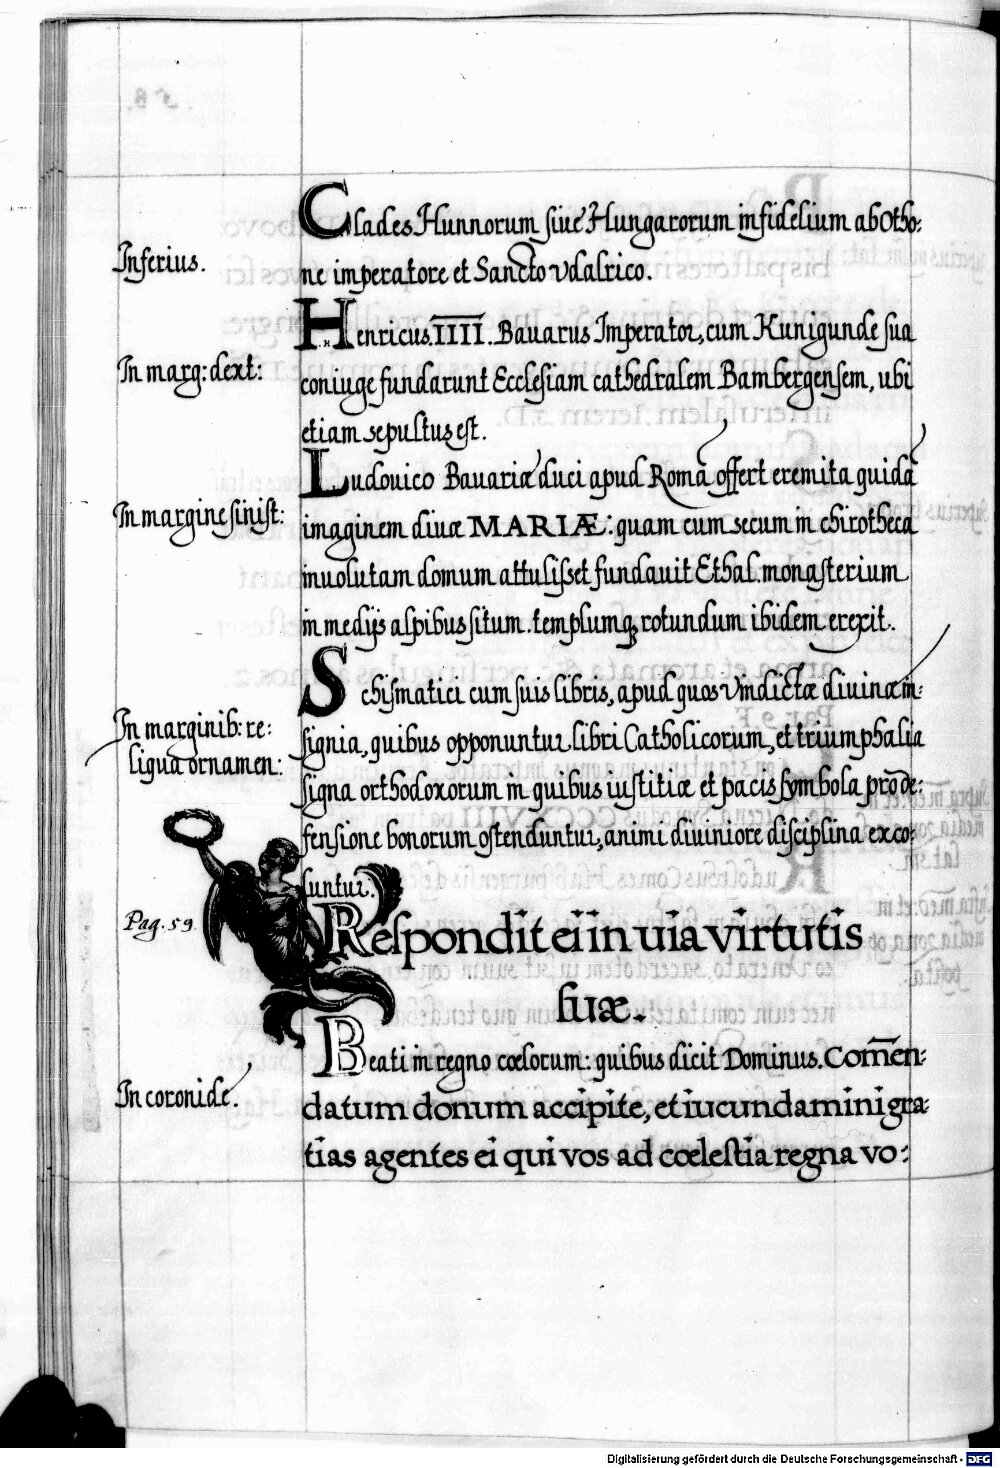 Clades Hunnorum siue Hungarorum infidelium ab Otho:
Inferius.
ne imperatore et Sancto Vdalrico.
Henricus IIII. Bauarus Imperator, cum Kunigunde sua
In marg: dext:
coniuge fundarunt Ecclesiam cathedralem Bambergensem, ubi
etiam sepultus est.
Ludouico Bauariæ duci apud Romā offert eremita quidā
In margine sinist:
imaginem diuæ MARIÆ: quam cum secum in chirotheca
inuolutam domum attulisset fundauit Ethal monasterium
in medijs alpibus situm. templumq rotundum ibidem erexit.
Schismatici cum suis libris, apud quos Vindictæ diuinæ in:
In marginib: re:
signia, quibus opponuntur libri Catholicorum, et triumphalia
liqua ornamen:
signa orthodoxorum in quibus iustitiæ et pacis symbola pro de:
fensione bonorum ostenduntur, animi diuiniore disciplina exco:
luntur.
Pag. 59
Respondit ei in uia virtutis
suæ.
Beati in regno cœlorum: quibus dicit Dominus. Com̄en:
In coronide.
datum donum accipite, et iucundamini gra:
tias agentes ei qui vos ad cœlestia regna vo:
Digitalisierung gefördert durch die Deutsche Forschungsgemeinschaft - DFG